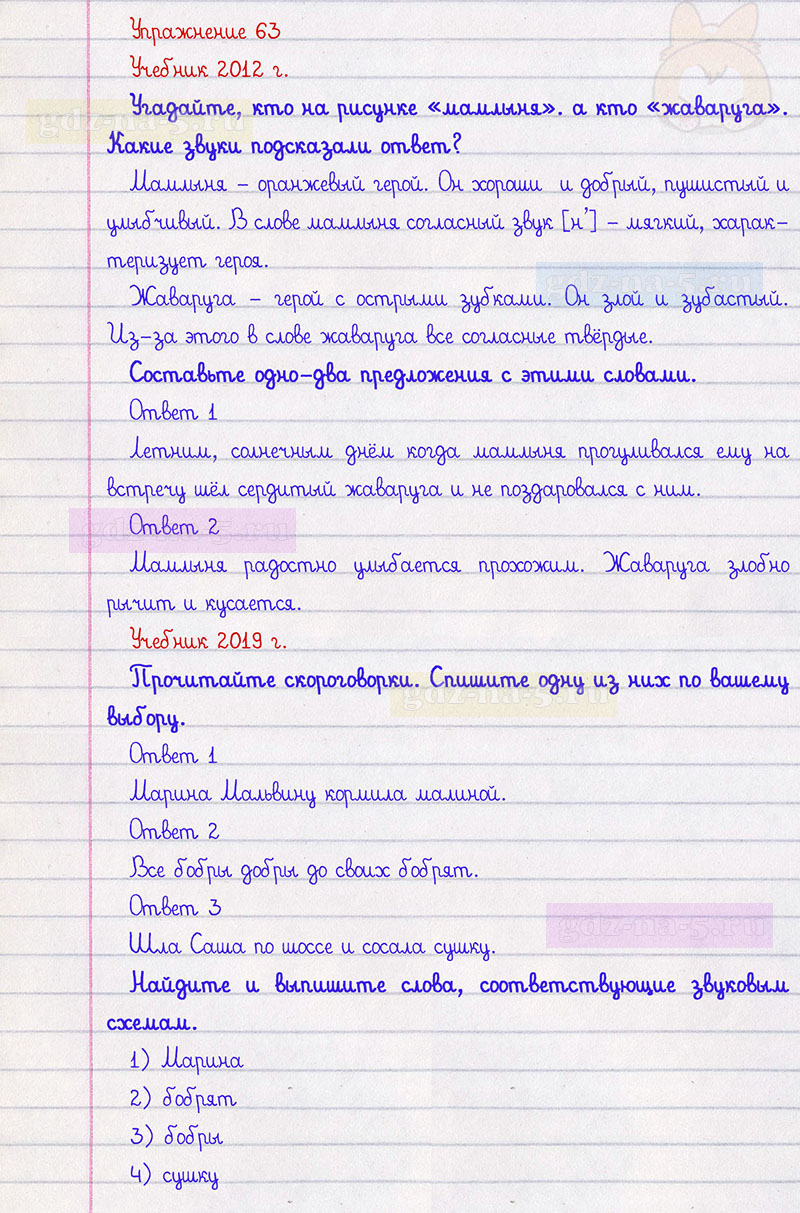 Упражнение 63
Учебник 2012 г.
gdz-na-5.ru
Угадайте, кто на рисунке «мамлыня». а кто «жаваруга».
Какие звуки подсказали ответ?
Мамлыня – оранжевый герой. Он хороши и добрый, пушистый и
улыбчивый. В слове мамлыня согласный звук [н’] – мягкий, харак-
теризует героя.
gdz-na-5.ru
Жаваруга – герой с острыми зубками. Он злой и зубастый.
Из-за этого в слове жаваруга все согласные твёрдые.
Составьте одно-два предложения с этими словами.
Ответ 1
Летним, солнечным днём когда мамлыня прогуливался ему на
встречу шёл сердитый жаваруга и не поздаровался с ним.
gdz-na-5.ru
Ответ 2
Мамлыня радостно улыбается прохожим. Жаваруга злобно
рычит и кусается.
Учебник 2019 г.
Прочитайте скороговорки. Спишите одну из них по вашему
gdz-na-5.ru
выбору.
Ответ 1
Марина Мальвину кормила малиной.
Ответ 2
Все бобры добры до своих бобрят.
Ответ 3
gdz-na-5.ru
Шла Саша по шоссе и сосала сушку.
Найдите и выпишите слова, соответствующие звуковым
схемам.
1) Марина
2) бобрят
3) бобры
4) сушку